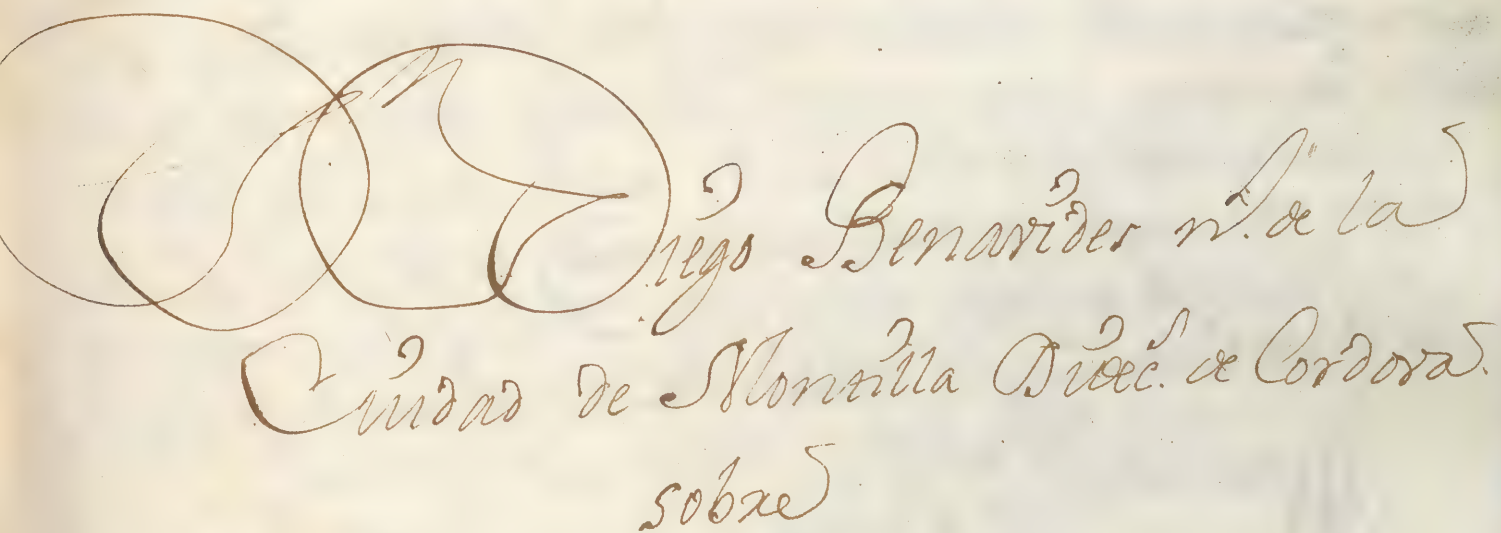 Diego Benavides n.l de la
Ciudad de Montilla Dioec.s de Cordova.
sobre